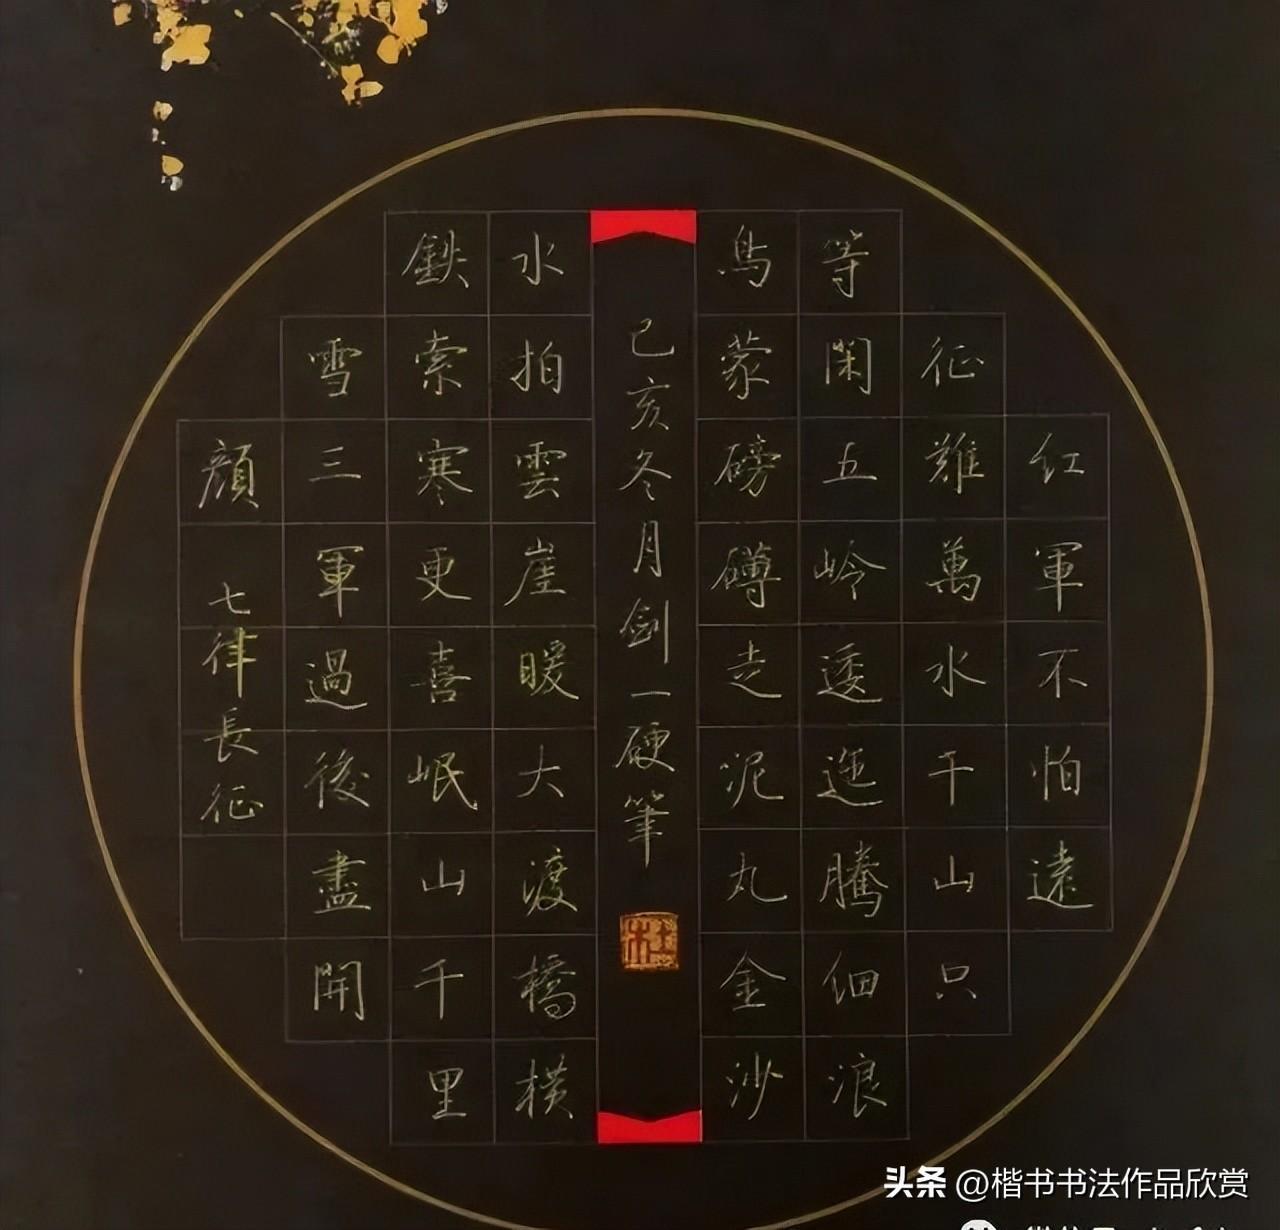 红軍不怕遠
征難萬水千山只
等閑五岭逶迤騰細浪
烏蒙磅礴走泥丸金沙
水拍雲崖暖大渡橋横
鉄索寒更喜岷山千里
雪三軍過後盡開
顔
七律長征
己亥冬月劍一硬筆
头条 @楷书书法作品欣赏